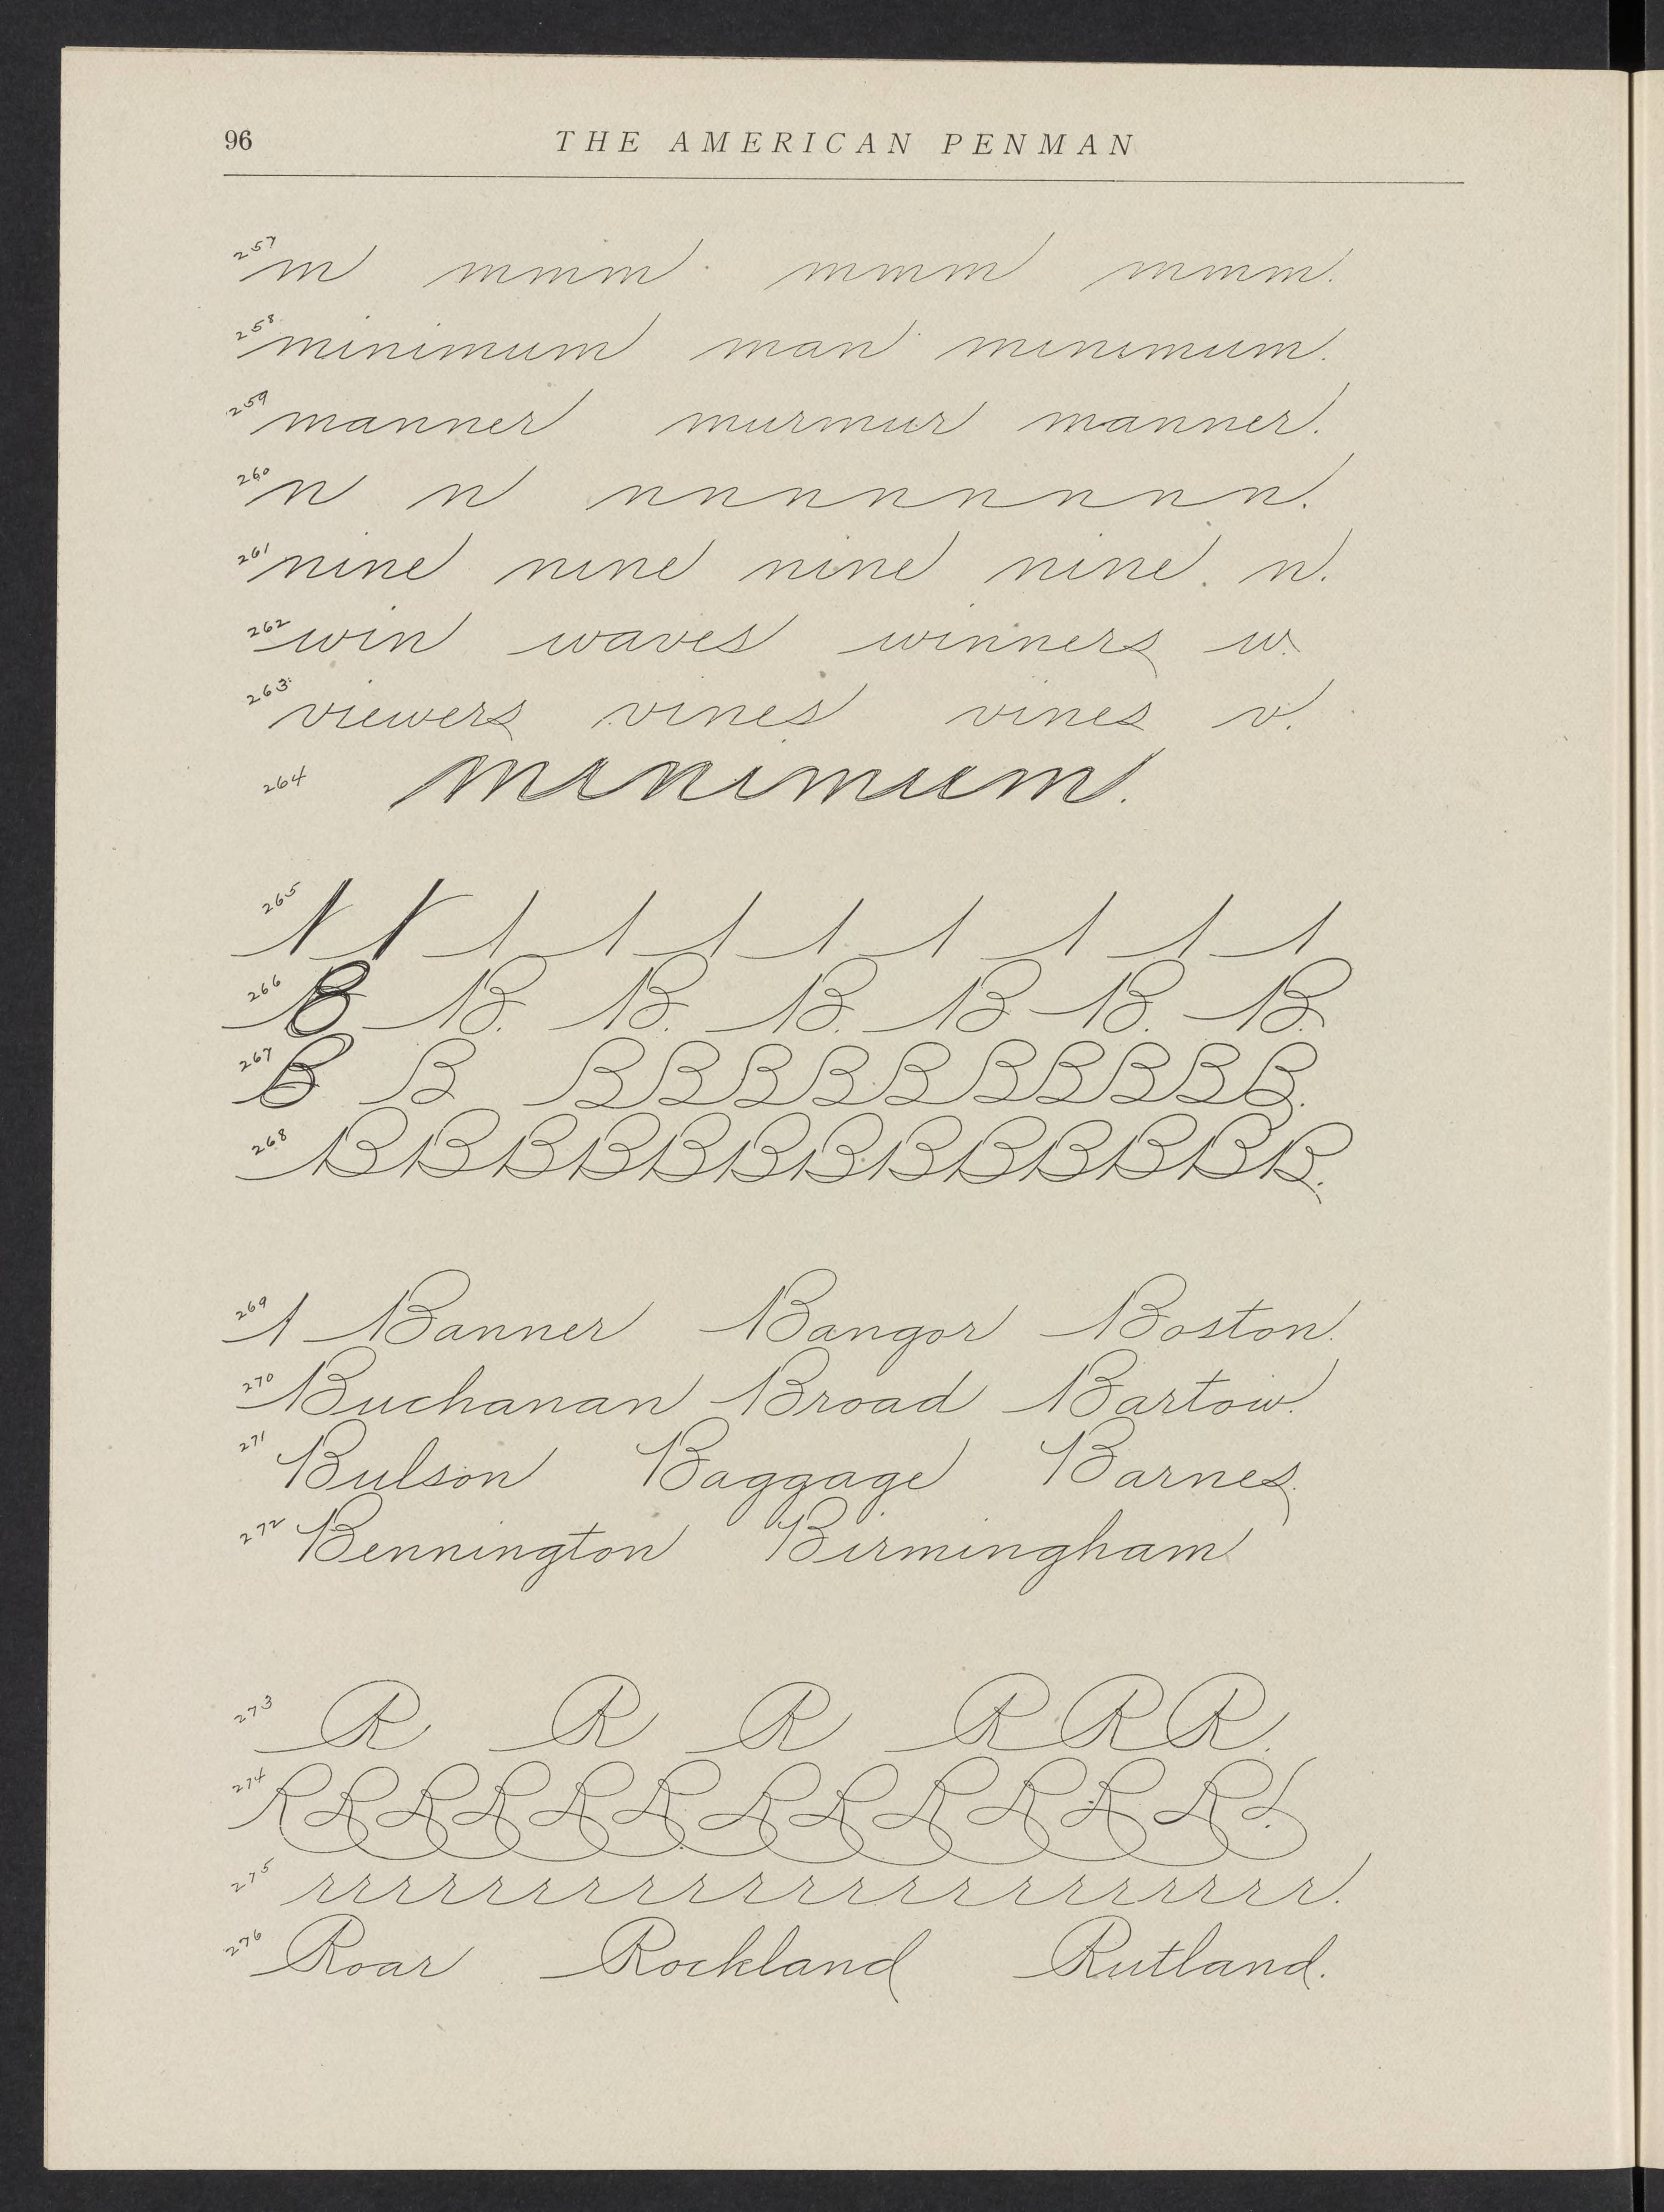 96 THE AMERICAN PENMAN
257 m mmm mmm mmm.
258 minimum man minimum.
259 manner murmur manner.
260 n n nnnnnnnn.
261 nine nine nine nine n.
262 win waves winners w.
263 viewers vines vines v.
264 minimum.
265
266 B B. B. B. B B. B.
267 B B BBBBBBBBBB.
268 BBBBBBBBBBBBB.
269 Banner Bangor Boston.
270 Buchanan Broad Bartow.
271 Bulson Baggage Barnes.
272 Bennington Birmingham
273 R R R RRR.
274 RRRRRRRRRRRR
275 rrrrrrrrrrrrrrrrrrrr.
276 Roar Rockland Rutland.